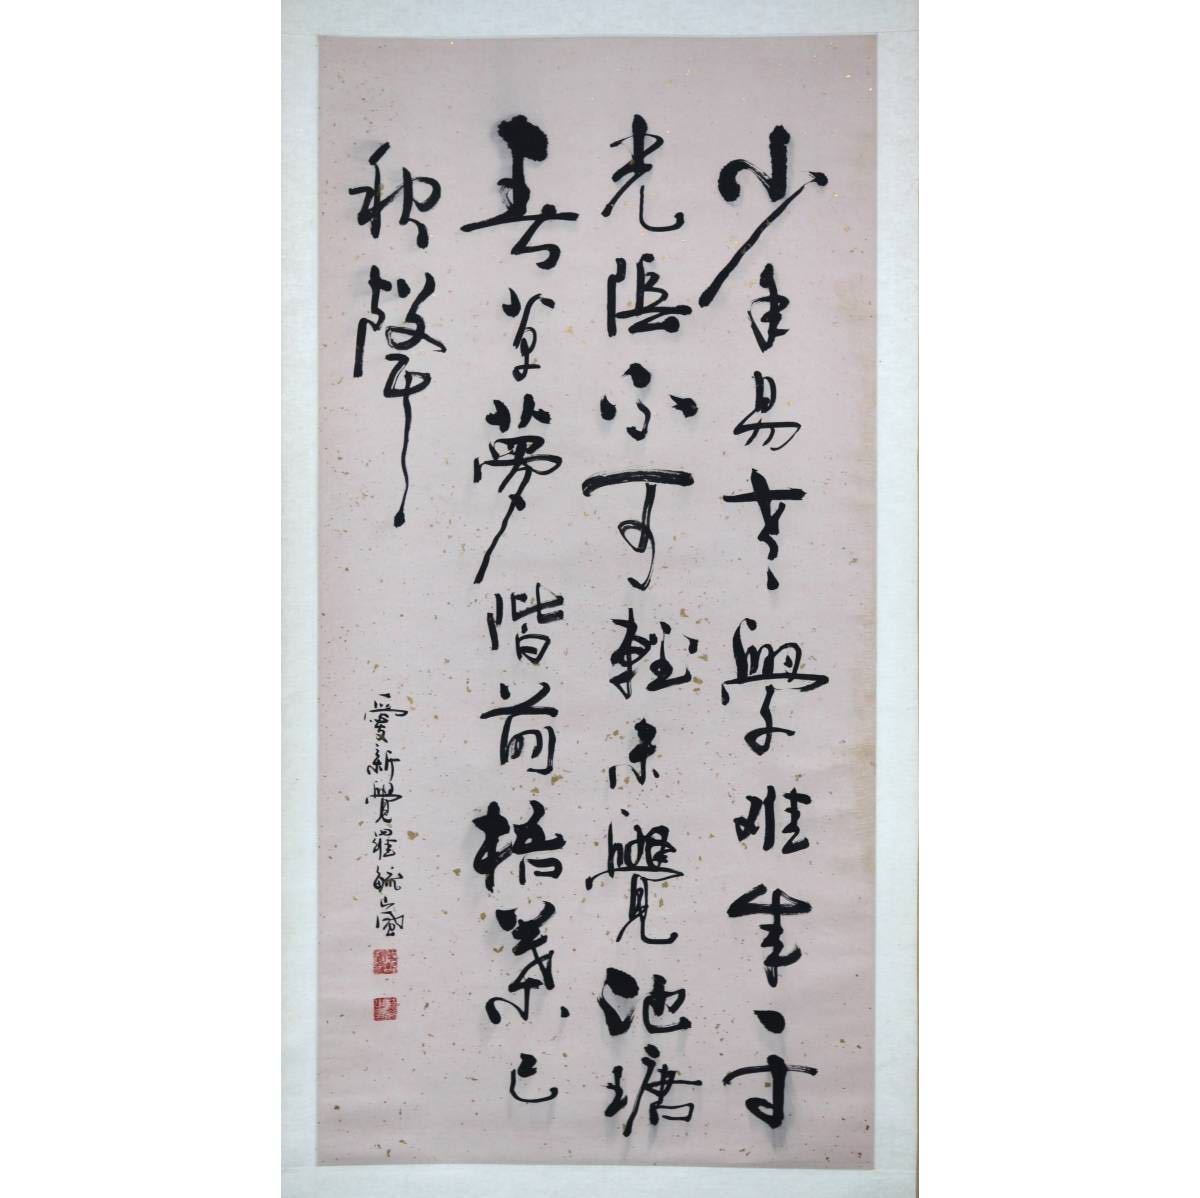 少年易老學難成一寸
光陰不可輕未覺池塘
春草夢階前梧葉已
秋聲
愛新覺羅毓嵒